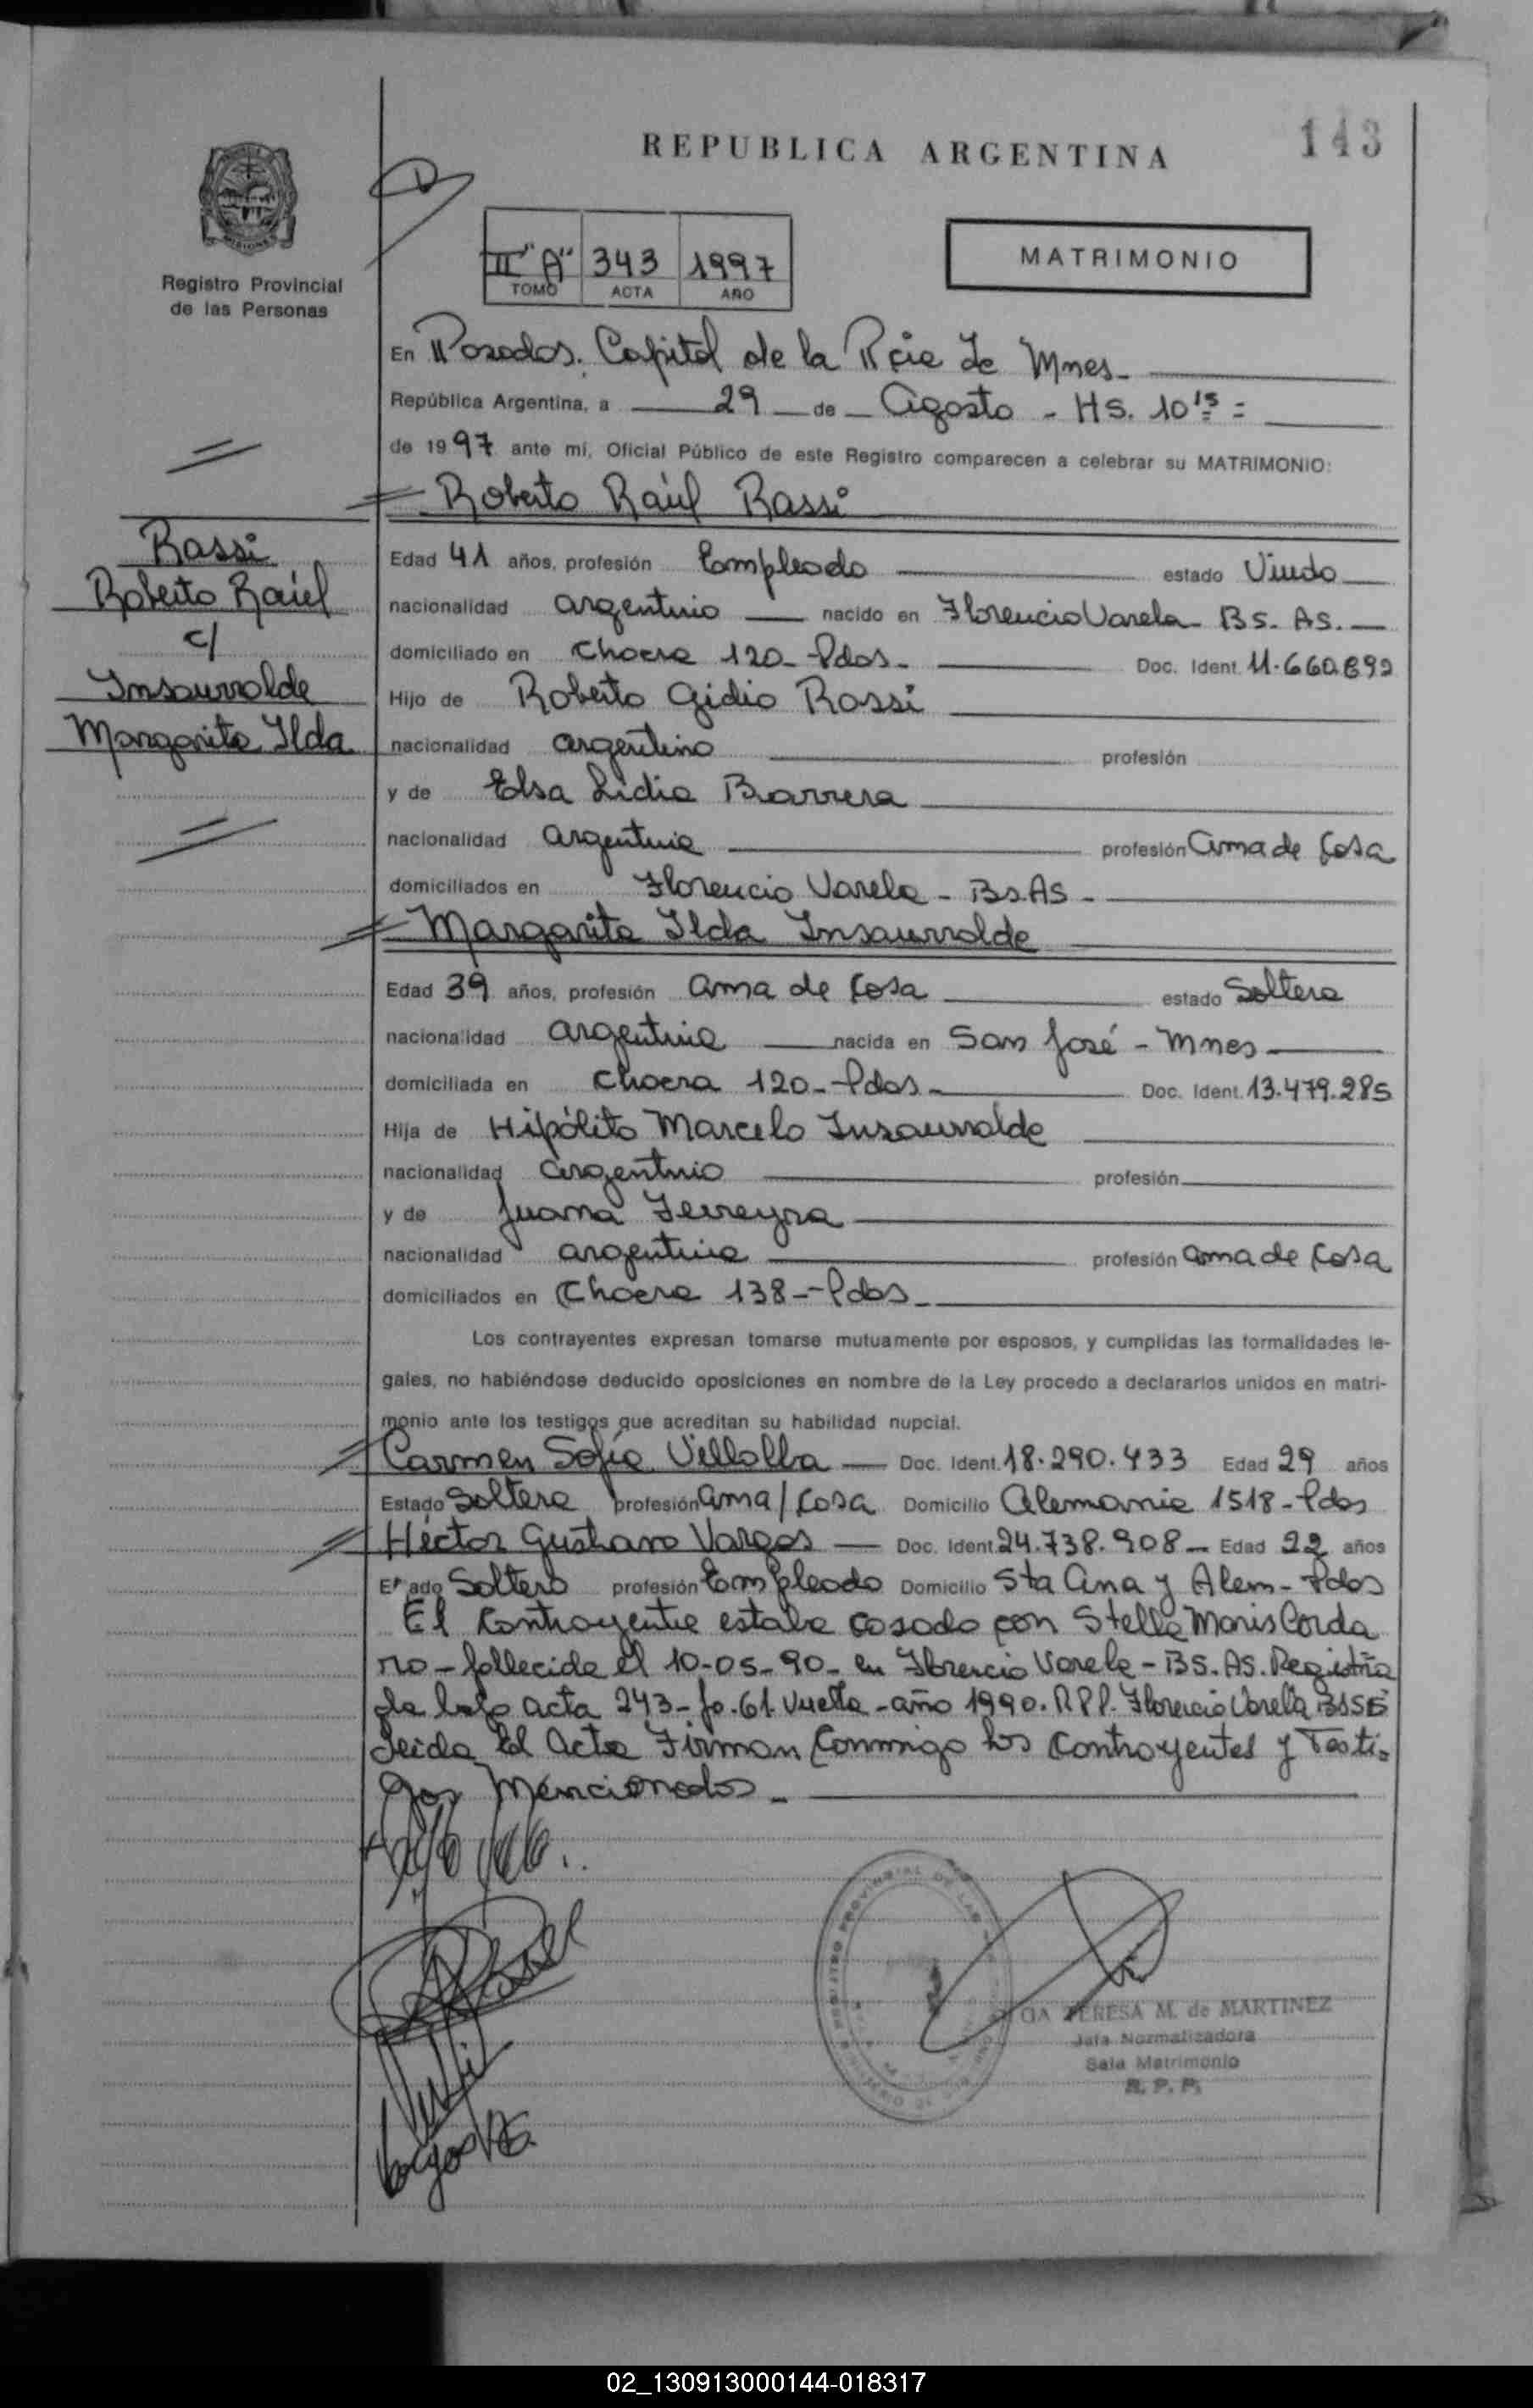 143
REPUBLICA ARGENTINA
MISIONES
Registro Provincial
de las Personas
II "A" 343 1997
TOMO ACTA AÑO
MATRIMONIO
En Posadas. Capital de la Pcia de Mnes-
República Argentina, a 29 de Agosto - HS. 10 15 =
de 1997 ante mí, Oficial Público de este Registro comparecen a celebrar su MATRIMONIO:
Roberto Raúl Rassi
Rassi
Roberto Raúl
c/
Insaurralde
Margarita Ilda
Edad 41 años, profesión Empleado estado Viudo
nacionalidad argentino nacido en Florencio Varela - Bs. As.
domiciliado en Chacra 120 - Pdas - Doc. Ident. 11.660.892
Hijo de Roberto Gidio Rossi
nacionalidad argentino profesión
y de Elsa Lidia Barrera
nacionalidad argentina profesión ama de casa
domiciliados en Florencio Varela - Bs.AS -
Margarita Ilda Insaurralde
Edad 39 años, profesión ama de casa estado Soltera
nacionalidad argentina nacida en San José - Mnes
domiciliada en Chacra 120 - Pdas - Doc. Ident. 13.479.285
Hija de Hipólito Marcelo Insaurralde
nacionalidad argentino profesión
y de Juana Ferreyra
nacionalidad argentina profesión ama de casa
domiciliados en Chacra 138 - Pdas -
Los contrayentes expresan tomarse mutuamente por esposos, y cumplidas las formalidades le-
gales, no habiéndose deducido oposiciones en nombre de la Ley procedo a declararlos unidos en matri-
monio ante los testigos que acreditan su habilidad nupcial.
Carmen Sofía Villalba Doc. Ident. 18.290.433 Edad 29 años
Estado Soltera profesión ama/casa Domicilio Alemania 1518 - Pdas
Héctor Gustavo Vargas Doc. Ident. 24.738.908 - Edad 22 años
Estado Soltero profesión Empleado Domicilio Sta Ana y Alem - Pdas
El contrayente estaba casado con Stella Maris Corda
ro - fallecida el 10-05-90 - en Florencio Varela - Bs. As. Registra
da bajo acta 243 - fo. 61. Vuelta - año 1990. R P P. Florencio Varela
Leida el Acta Firman conmigo los contrayentes y Testi-
gos Mencionados -
Vargas
REGISTRO PROVINCIAL DE LAS
TERESA M. de MARTINEZ
Jefa Normalizadora
Sala Matrimonio
R. P. P.
02_130913000144-018317